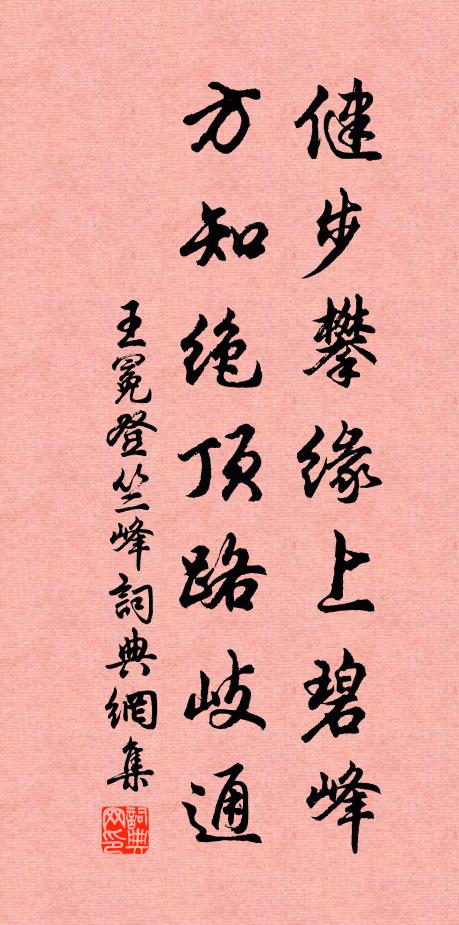 健步攀缘上碧峰
方知绝顶路歧通
王冕登竺峰詞典網集
詞典网印